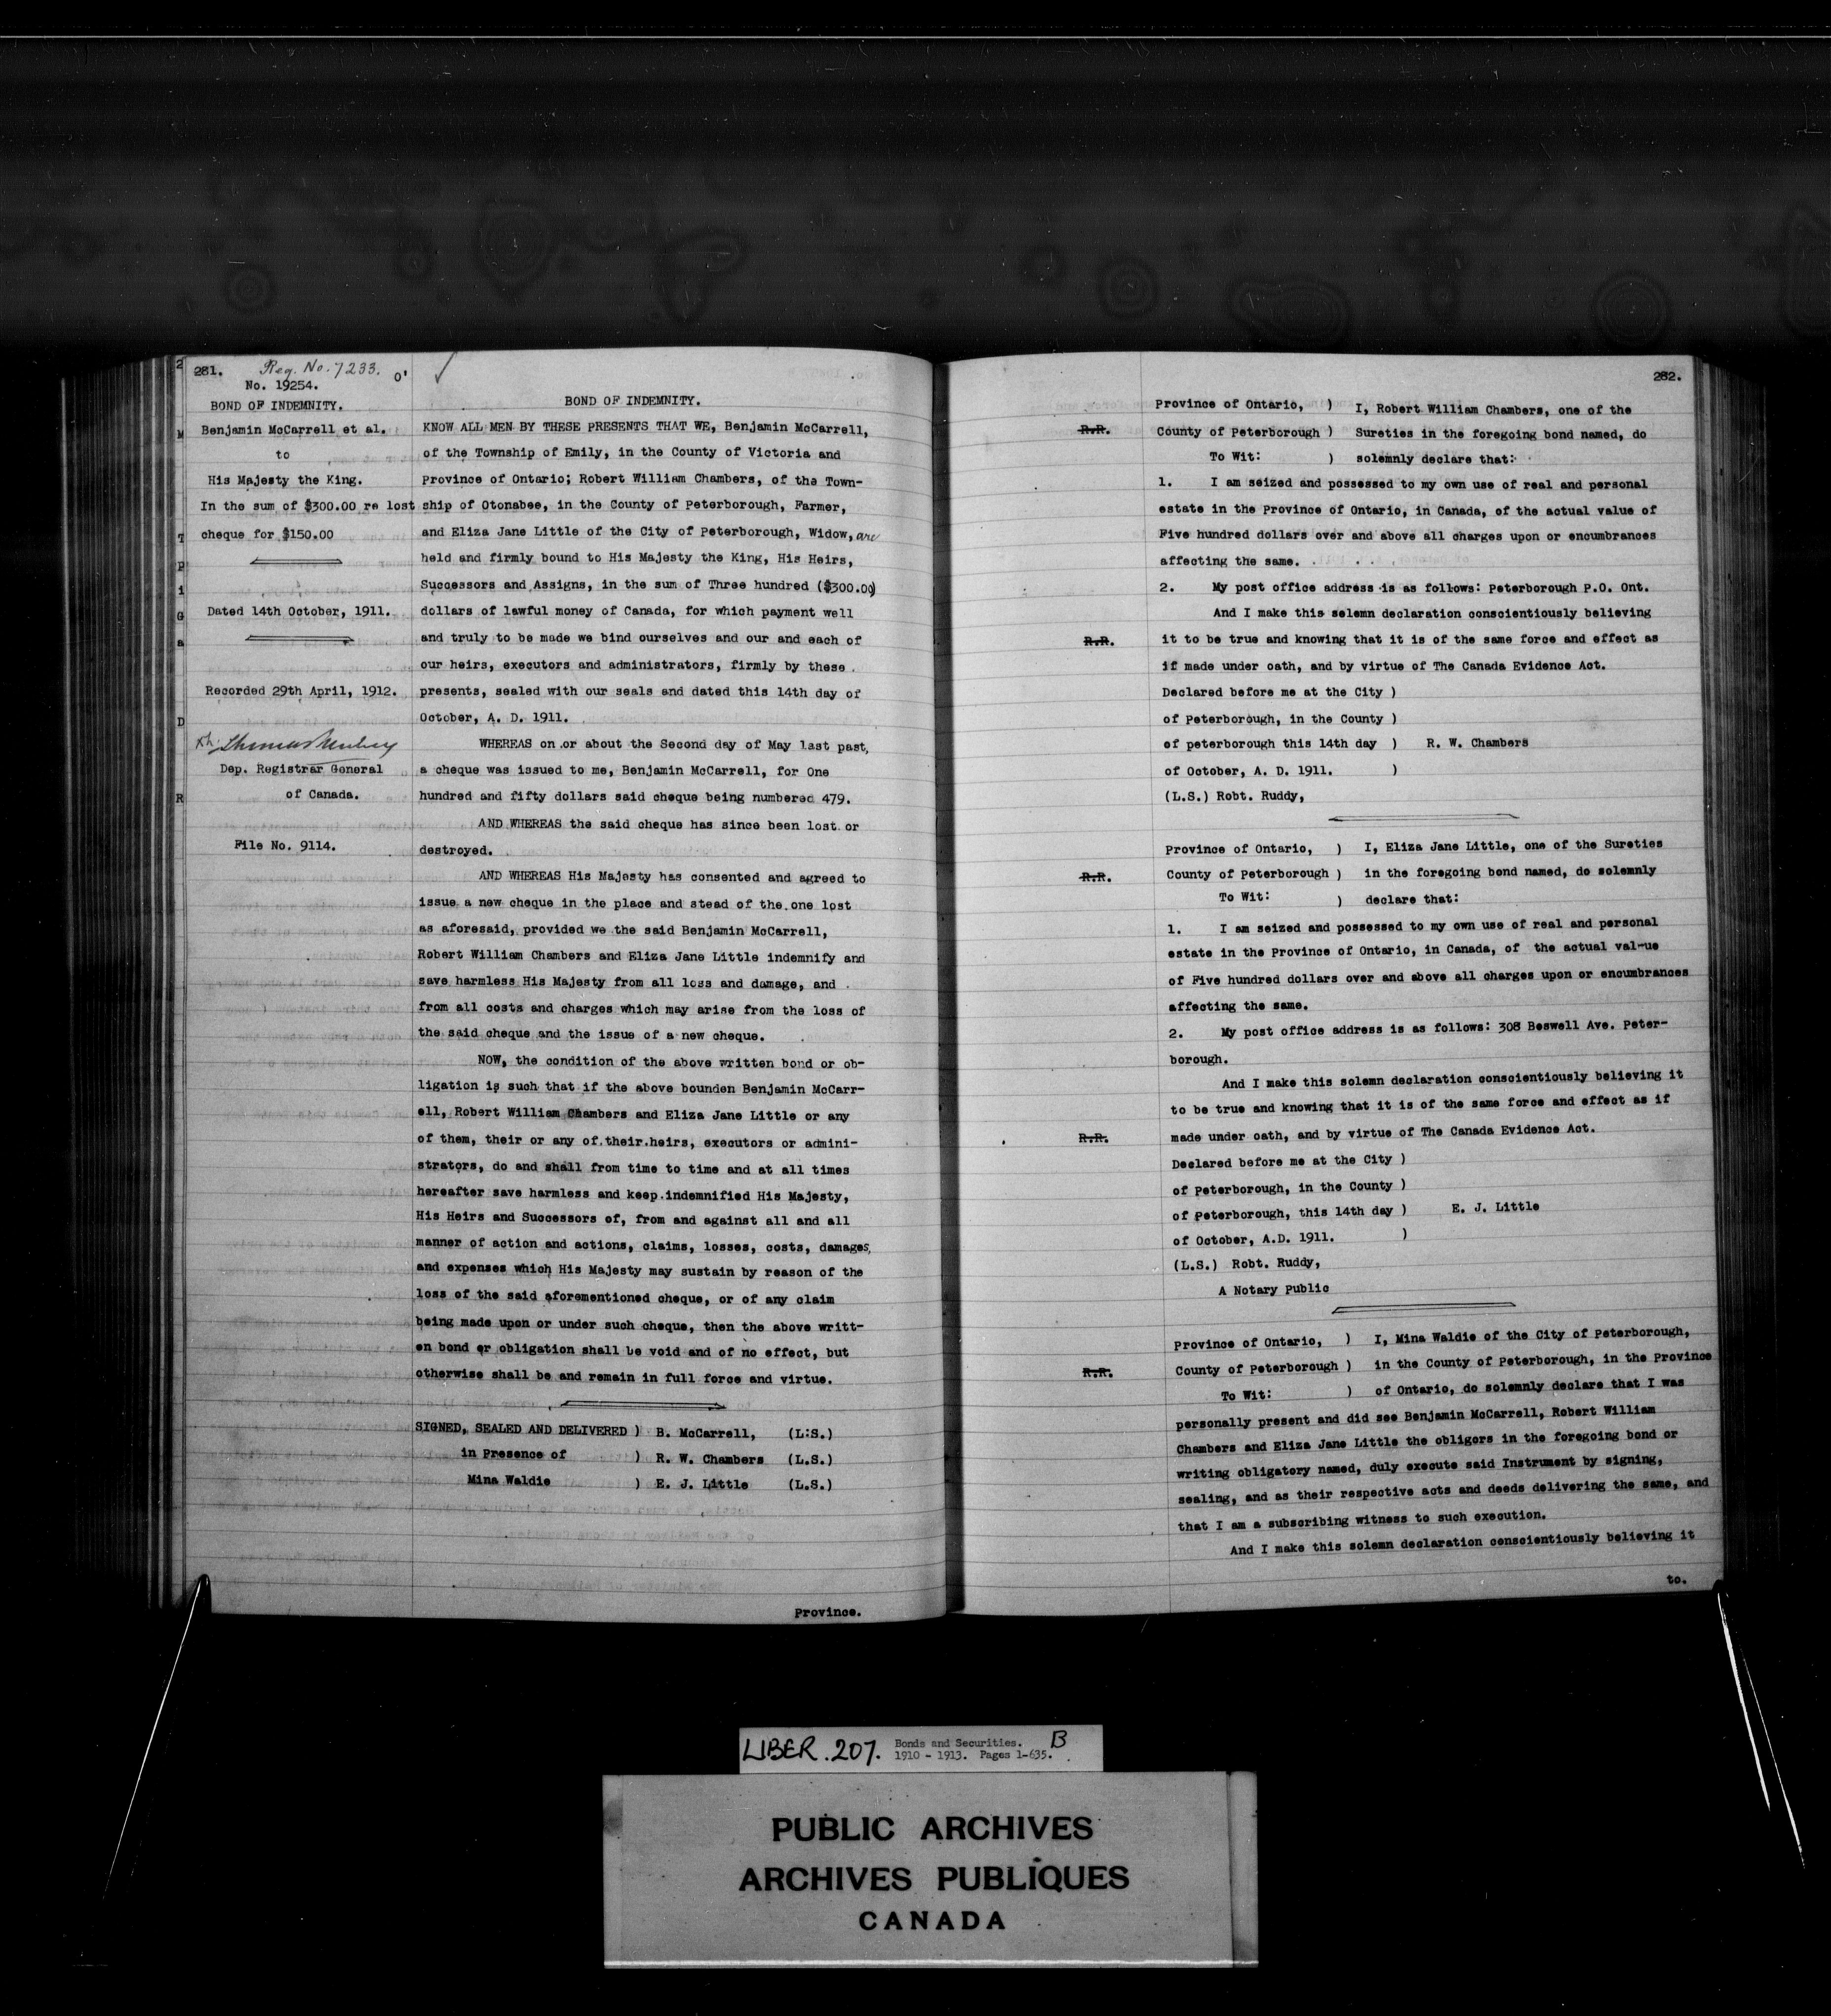 281.
Reg. No. 7233.
No. 19254.
BOND OF INDEMNITY.
Benjamin McCarrell et al.
to
His Majesty the King.
In the sum of $300.00 re lost
cheque for $150.00
Dated 14th October, 1911.
Recorded 29th April, 1912.
Dep. Registrar General
of Canada.
File No. 9114.
BOND OF INDEMNITY.
KNOW ALL MEN BY THESE PRESENTS THAT WE, Benjamin McCarrell,
of the Township of Emily, in the County of Victoria and
Province of Ontario; Robert William Chambers, of the Town-
ship of Otonabee, in the County of Peterborough, Farmer,
and Eliza Jane Little of the City of Peterborough, Widow, are
held and firmly bound to His Majesty the King, His Heirs,
Successors and Assigns, in the sum of Three hundred ($300.00)
dollars of lawful money of Canada, for which payment well
and truly to be made we bind ourselves and our and each of
our heirs, executors and administrators, firmly by these
presents, sealed with our seals and dated this 14th day of
October, A. D. 1911.
WHEREAS on or about the Second day of May last past,
a cheque was issued to me, Benjamin McCarrell, for One
hundred and fifty dollars said cheque being numbered 479.
AND WHEREAS the said cheque has since been lost or
destroyed.
AND WHEREAS His Majesty has consented and agreed to
issue a new cheque in the place and stead of the one lost
as aforesaid, provided we the said Benjamin McCarrell,
Robert William Chambers and Eliza Jane Little indemnify and
save harmless His Majesty from all loss and damage, and
from all costs and charges which may arise from the loss of
the said cheque and the issue of a new cheque.
NOW, the condition of the above written bond or ob-
ligation is such that if the above bounden Benjamin McCarr-
ell, Robert William Chambers and Eliza Jane Little or any
of them, their or any of their heirs, executors or admini-
strators, do and shall from time to time and at all times
hereafter save harmless and keep indemnified His Majesty,
His Heirs and Successors of, from and against all and all
manner of action and actions, claims, losses, costs, damages,
and expenses which His Majesty may sustain by reason of the
loss of the said aforementioned cheque, or of any claim
being made upon or under such cheque, then the above writt-
en bond or obligation shall be void and of no effect, but
otherwise shall be and remain in full force and virtue.
SIGNED, SEALED AND DELIVERED ) B. McCarrell, (L.S.)
in Presence of ) R. W. Chambers (L.S.)
Mina Waldie ) E. J. Little (L.S.)
Province.
282.
Province of Ontario, ) I, Robert William Chambers, one of the
R.R. County of Peterborough ) Sureties in the foregoing bond named, do
To Wit: ) solemnly declare that:
1. I am seized and possessed to my own use of real and personal
estate in the Province of Ontario, in Canada, of the actual value of
Five hundred dollars over and above all charges upon or encumbrances
affecting the same.
2. My post office address is as follows: Peterborough P.O. Ont.
And I make this solemn declaration conscientiously believing
R.R. it to be true and knowing that it is of the same force and effect as
if made under oath, and by virtue of The Canada Evidence Act.
Declared before me at the City )
of Peterborough, in the County )
of peterborough this 14th day ) R. W. Chambers
of October, A. D. 1911. )
(L.S.) Robt. Ruddy,
Province of Ontario, ) I, Eliza Jane Little, one of the Sureties
R.R. County of Peterborough ) in the foregoing bond named, do solemnly
To Wit: ) declare that:
1. I am seized and possessed to my own use of real and personal
estate in the Province of Ontario, in Canada, of the actual val-ue
of Five hundred dollars over and above all charges upon or encumbrances
affecting the same.
2. My post office address is as follows: 308 Beswell Ave. Peter-
borough.
And I make this solemn declaration conscientiously believing it
to be true and knowing that it is of the same force and effect as if
R.R. made under oath, and by virtue of The Canada Evidence Act.
Declared before me at the City )
of Peterborough, in the County )
of Peterborough, this 14th day ) E. J. Little
of October, A.D. 1911. )
(L.S.) Robt. Ruddy,
A Notary Public
Province of Ontario, ) I, Mina Waldie of the City of Peterborough,
R.R. County of Peterborough ) in the County of Peterborough, in the Province
To Wit: ) of Ontario, do solemnly declare that I was
personally present and did see Benjamin McCarrell, Robert William
Chambers and Eliza Jane Little the obligors in the foregoing bond or
writing obligatory named, duly execute said Instrument by signing,
sealing, and as their respective acts and deeds delivering the same, and
that I am a subscribing witness to such execution.
And I make this solemn declaration conscientiously believing it
to.
LIBER. 207. Bonds and Securities. B
1910 - 1913. Pages 1-635.
PUBLIC ARCHIVES
ARCHIVES PUBLIQUES
CANADA